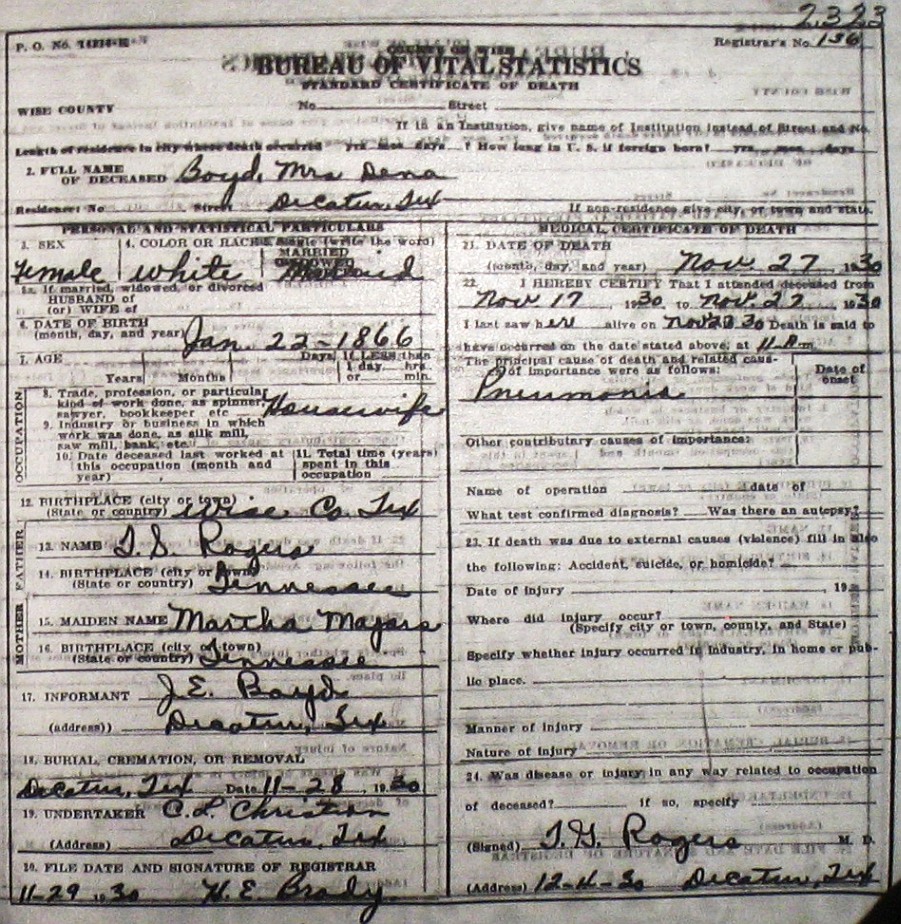 2323
P. O. No.
Registrar's No. 136
COUNTY OF WISE
BUREAU OF VITAL STATISTICS
STANDARD CERTIFICATE OF DEATH
WISE COUNTY
No. Street
If in an Institution, give name of Institution instead of Street and No.
Length of residence in city where death occurred yrs mos days ? How long in U. S. if foreign born? yrs mos days
2. FULL NAME OF DECEASED Boyd, Mrs Dena
Residence: No Street Decatur, Tex
If non-residence give city, or town and state.
PERSONAL AND STATISTICAL PARTICULARS
3. SEX 4. COLOR OR RACE Single (write the word)
MARRIED
WIDOWED
Female white Married
5a. If married, widowed, or divorced
HUSBAND of
(or) WIFE of
6. DATE OF BIRTH
(month, day, and year) Jan. 22-1866
7. AGE Years Months Days If LESS than
1 day hrs
or min.
OCCUPATION
8. Trade, profession, or particular
kind of work done, as spinner,
sawyer, bookkeeper etc Housewife
9. Industry or business in which
work was done, as silk mill,
saw mill, bank, etc.
10. Date deceased last worked at
this occupation (month and
year)
11. Total time (years)
spent in this
occupation
12. BIRTHPLACE (city or town)
(State or country) Wise Co. Tex
FATHER
13. NAME T. S. Rogers
14. BIRTHPLACE (city or town)
(State or country) Tennessee
MOTHER
15. MAIDEN NAME Martha Mayars
16. BIRTHPLACE (city or town)
(State or country) Tennessee
17. INFORMANT J. E. Boyd
(address)) Decatur, Tex
18. BURIAL, CREMATION, OR REMOVAL
Decatur, Tex Date 11-28, 1930
19. UNDERTAKER C. L. Christian
(Address) Decatur, Tex
20. FILE DATE AND SIGNATURE OF REGISTRAR
11-29 1930 H. E. Brady
MEDICAL CERTIFICATE OF DEATH
21. DATE OF DEATH
(month, day, and year) Nov. 27 1930
22. I HEREBY CERTIFY That I attended deceased from
Nov 17, 1930 to Nov. 27 1930
I last saw her alive on Death is said to
have occurred on the date stated above, at 11- P m
The principal cause of death and related causes
of importance were as follows:
Date of
onset
Pneumonia
Other contributary causes of importance:
Name of operation date of
What test confirmed diagnosis? Was there an autopsy?
23. If death was due to external causes (violence) fill in also
the following: Accident, suicide, or homicide?
Date of injury 19
Where did injury occur?
(Specify city or town, county, and State)
Specify whether injury occurred in industry, in home or pub-
lic place.
Manner of injury
Nature of injury
24. Was disease or injury in any way related to occupation
of deceased? if so, specify
(Signed) T. G. Rogers M. D.
(Address) 12-4-30 Decatur, Tex